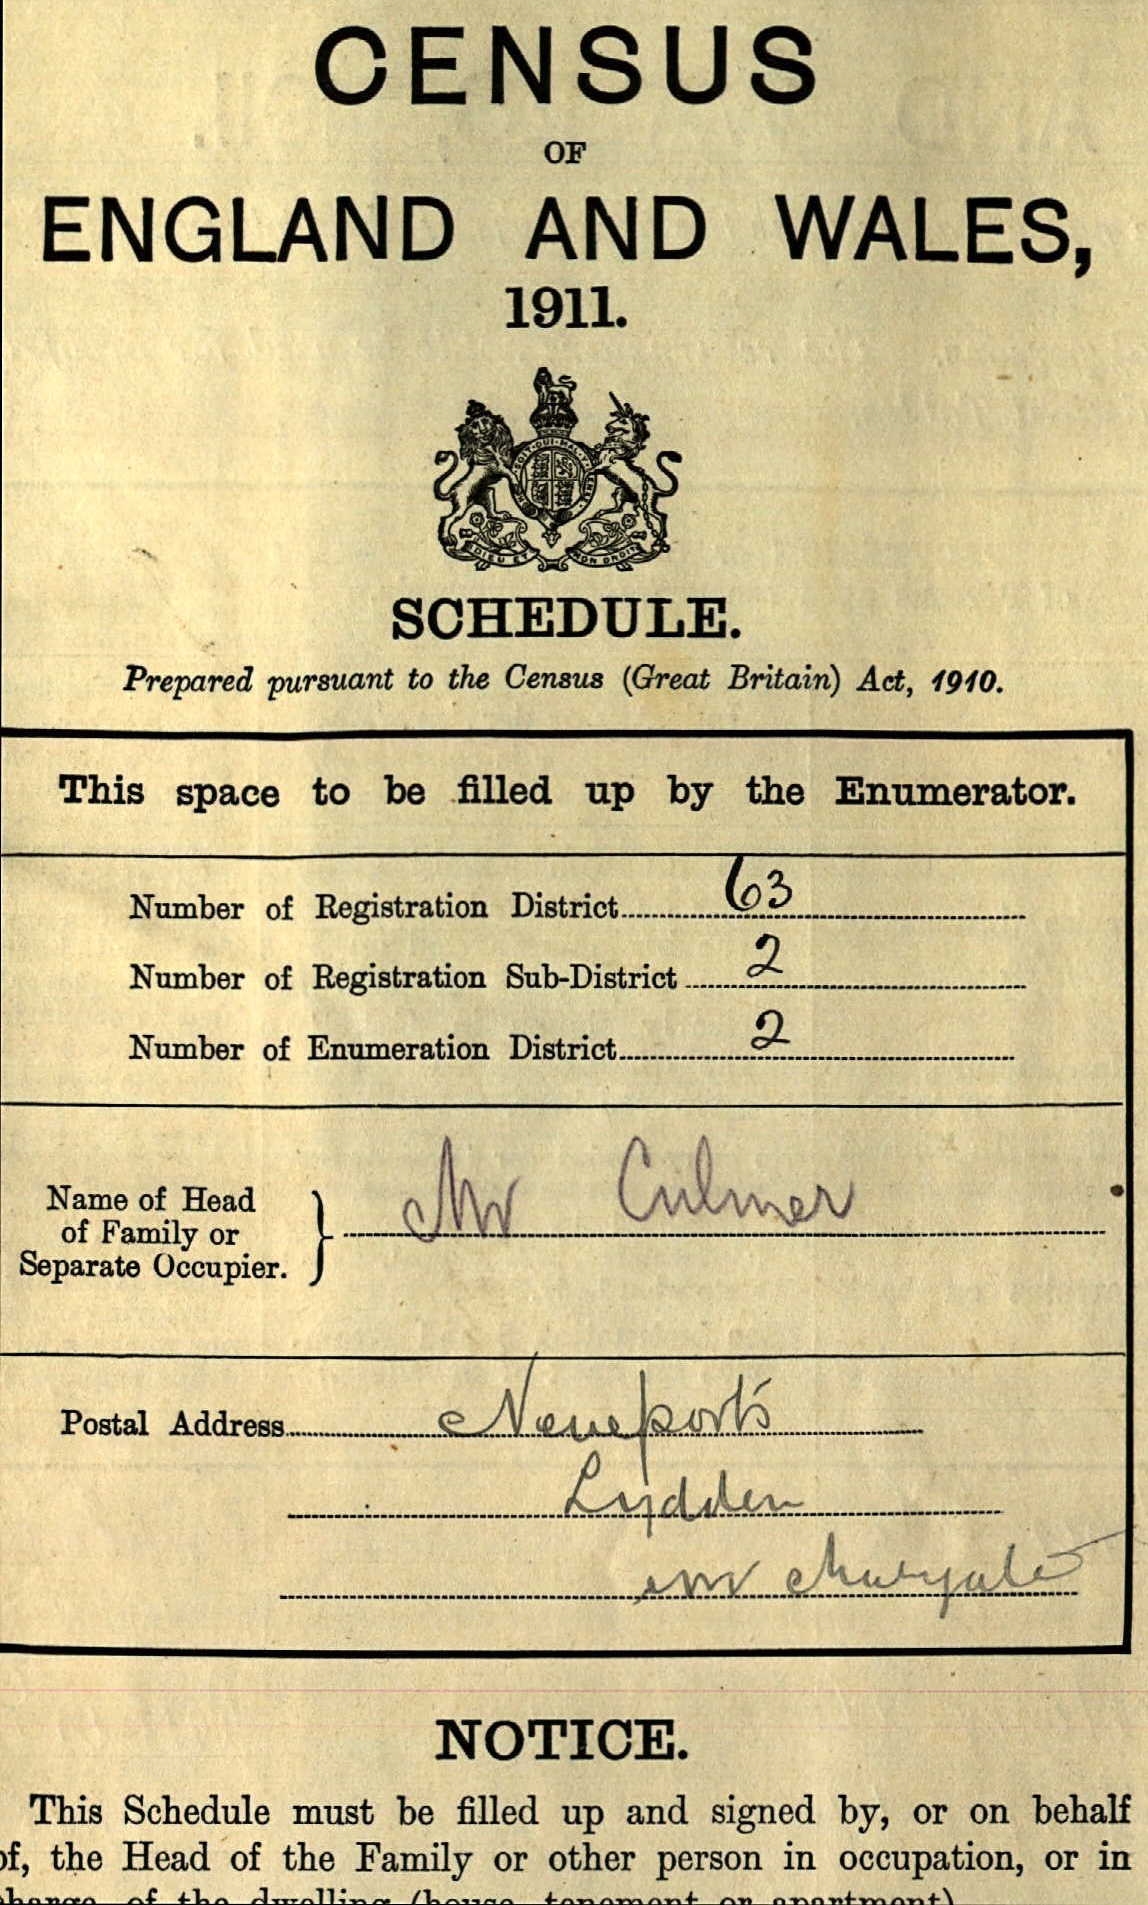 CENSUS
OF
ENGLAND AND WALES,
1911.
SOIT QUI MAL Y PENSE
DIEU ET MON DROIT
SCHEDULE.
Prepared pursuant to the Census (Great Britain) Act, 1910.
This space to be filled up by the Enumerator.
Number of Registration District 63
Number of Registration Sub-District 2
Number of Enumeration District 2
Name of Head
of Family or
Separate Occupier. } Mr Culmer
Postal Address
Lydden
Margate
NOTICE.
This Schedule must be filled up and signed by, or on behalf
of, the Head of the Family or other person in occupation, or in
charge, of the dwelling (house, tenement or apartment).